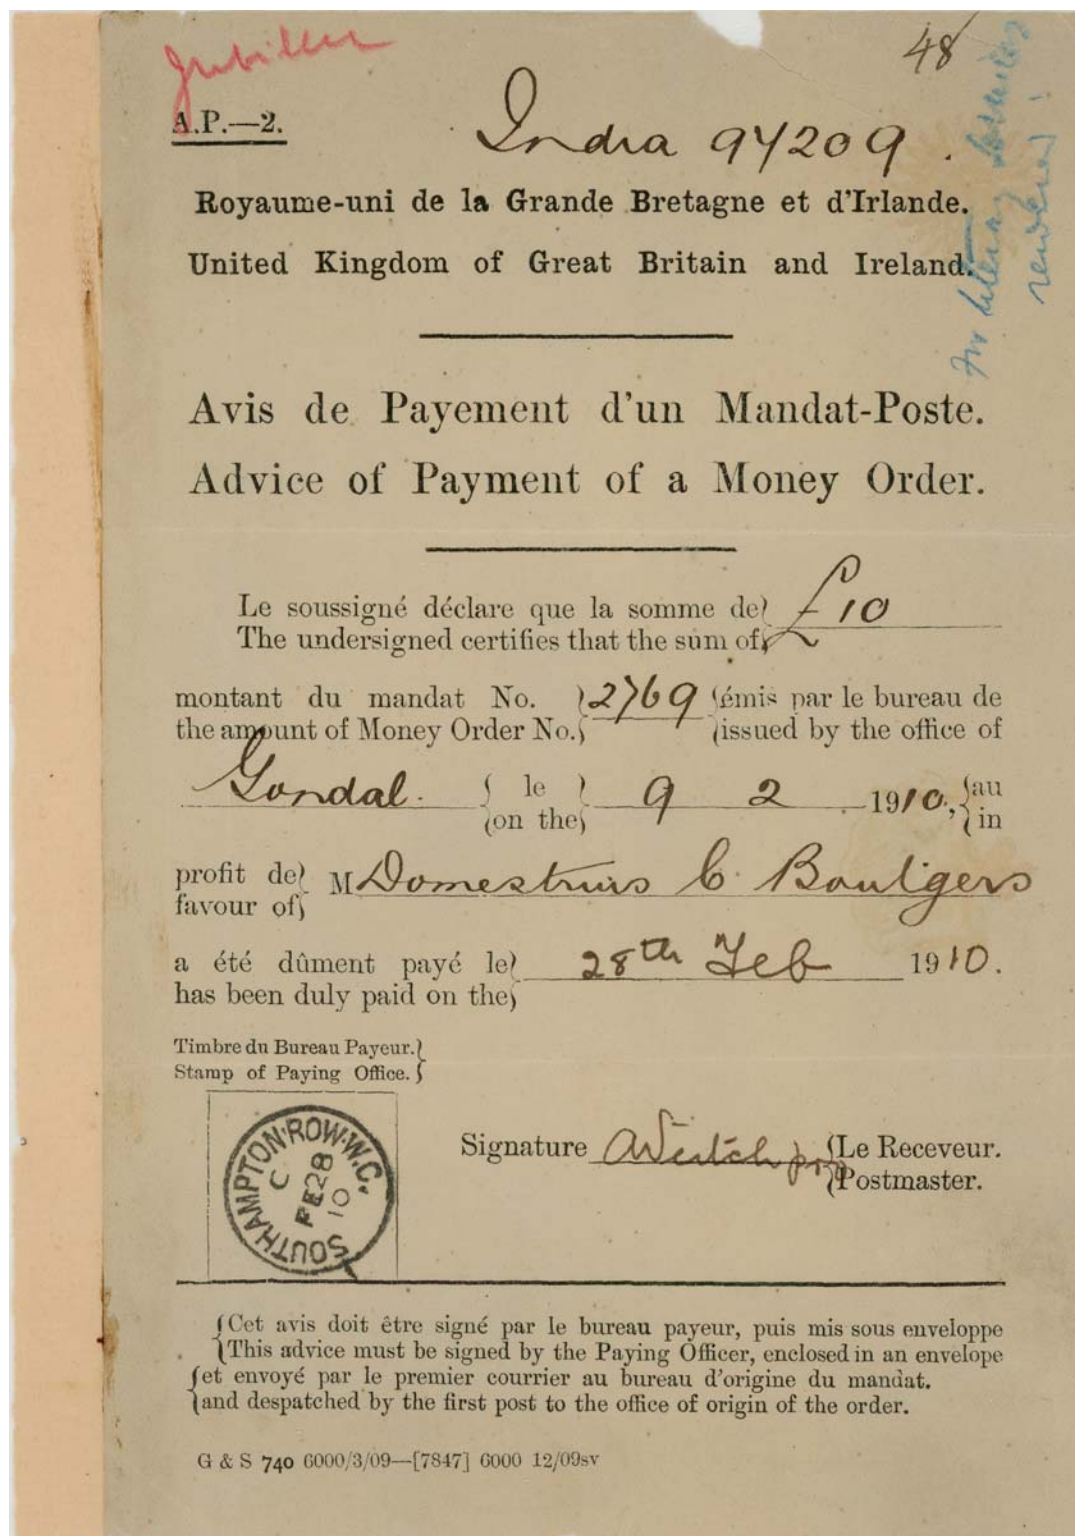 Jubilee
48
A.P.—2.
India 94209.
for literary services
rendered!
Royaume-uni de la Grande Bretagne et d'Irlande.
United Kingdom of Great Britain and Ireland.
Avis de Payement d'un Mandat-Poste.
Advice of Payment of a Money Order.
Le soussigné déclare que la somme de
The undersigned certifies that the sum of
£10
montant du mandat No.
the amount of Money Order No.
2769
émis par le bureau de
issued by the office of
Gondal.
le
on the
9 2 1910,
au
in
profit de
favour of
M Domestrius C. Boulgers
a été dûment payé le
has been duly paid on the
28th Feb 1910.
Timbre du Bureau Payeur.
Stamp of Paying Office.
SOUTHAMPTON·ROW·W.C.
C
FE 28
10
Signature
Le Receveur.
Postmaster.
Cet avis doit être signé par le bureau payeur, puis mis sous enveloppe
This advice must be signed by the Paying Officer, enclosed in an envelope
et envoyé par le premier courrier au bureau d'origine du mandat.
and despatched by the first post to the office of origin of the order.
G & S 740 6000/3/09—[7847] 6000 12/09sv